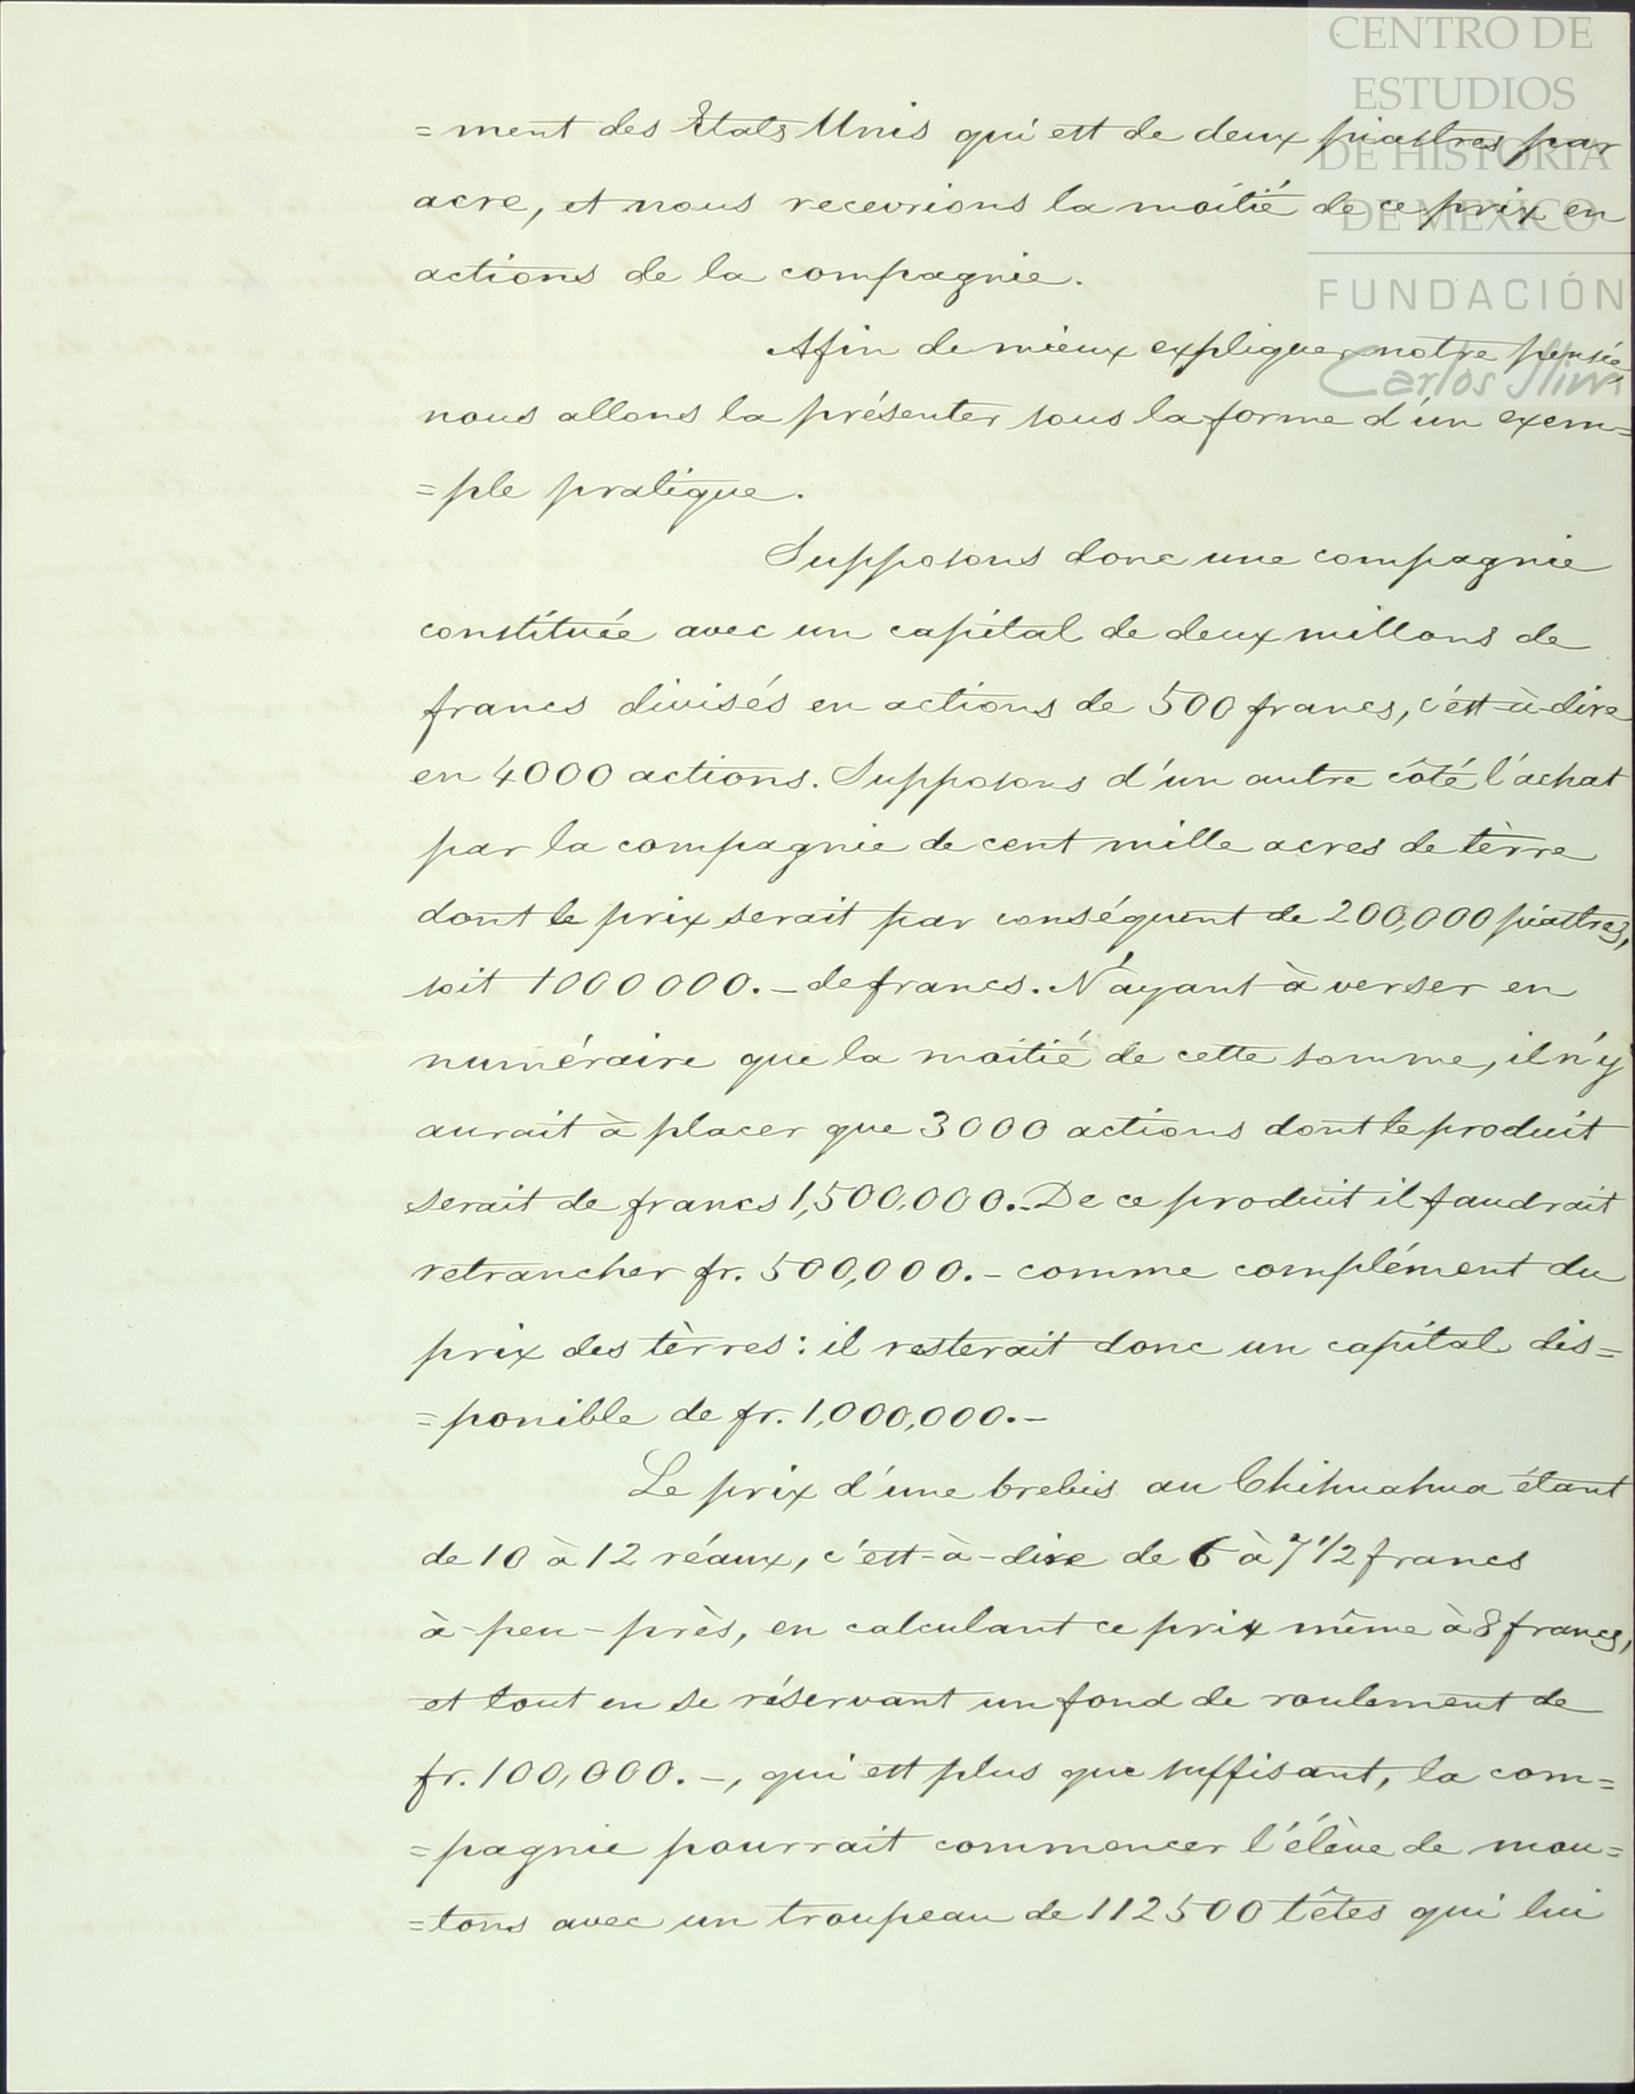 CENTRO DE
ESTUDIOS
DE HISTORIA
DE MÉXICO
FUNDACIÓN
Carlos Slim
=ment des Etats Unis qui est de deux piastres par
acre, et nous recevrions la moitié de ce prix en
actions de la compagnie.
Afin de mieux expliquer notre pensée,
nous allons la présenter sous la forme d'un exem=
=ple pratique.
Supposons donc une compagnie
constituée avec un capital de deux millons de
francs divisés en actions de 500 francs, c'est-à-dire
en 4000 actions. Supposons d'un autre côté l'achat
par la compagnie de cent mille acres de tèrre
dont le prix serait par conséquent de 200,000 piastres,
soit 1000000.- de francs. N'ayant à verser en
numéraire que la moitié de cette somme, il n'y
aurait à placer que 3000 actions dont le produit
serait de francs 1,500,000.- De ce produit il faudrait
retrancher fr. 500,000.- comme complément du
prix des tèrres: il resterait donc un capital dis=
=ponible de fr. 1,000,000.-
Le prix d'une brebis au Chihuahua étant
de 10 à 12 réaux, c'est-à-dire de 6 à 7 1/2 francs
à-peu-près, en calculant ce prix même à 8 francs,
et tout en se réservant un fond de roulement de
fr. 100,000.-, qui est plus que suffisant, la com=
=pagnie pourrait commencer l'élève de mou=
=tons avec un troupeau de 112500 têtes qui lui